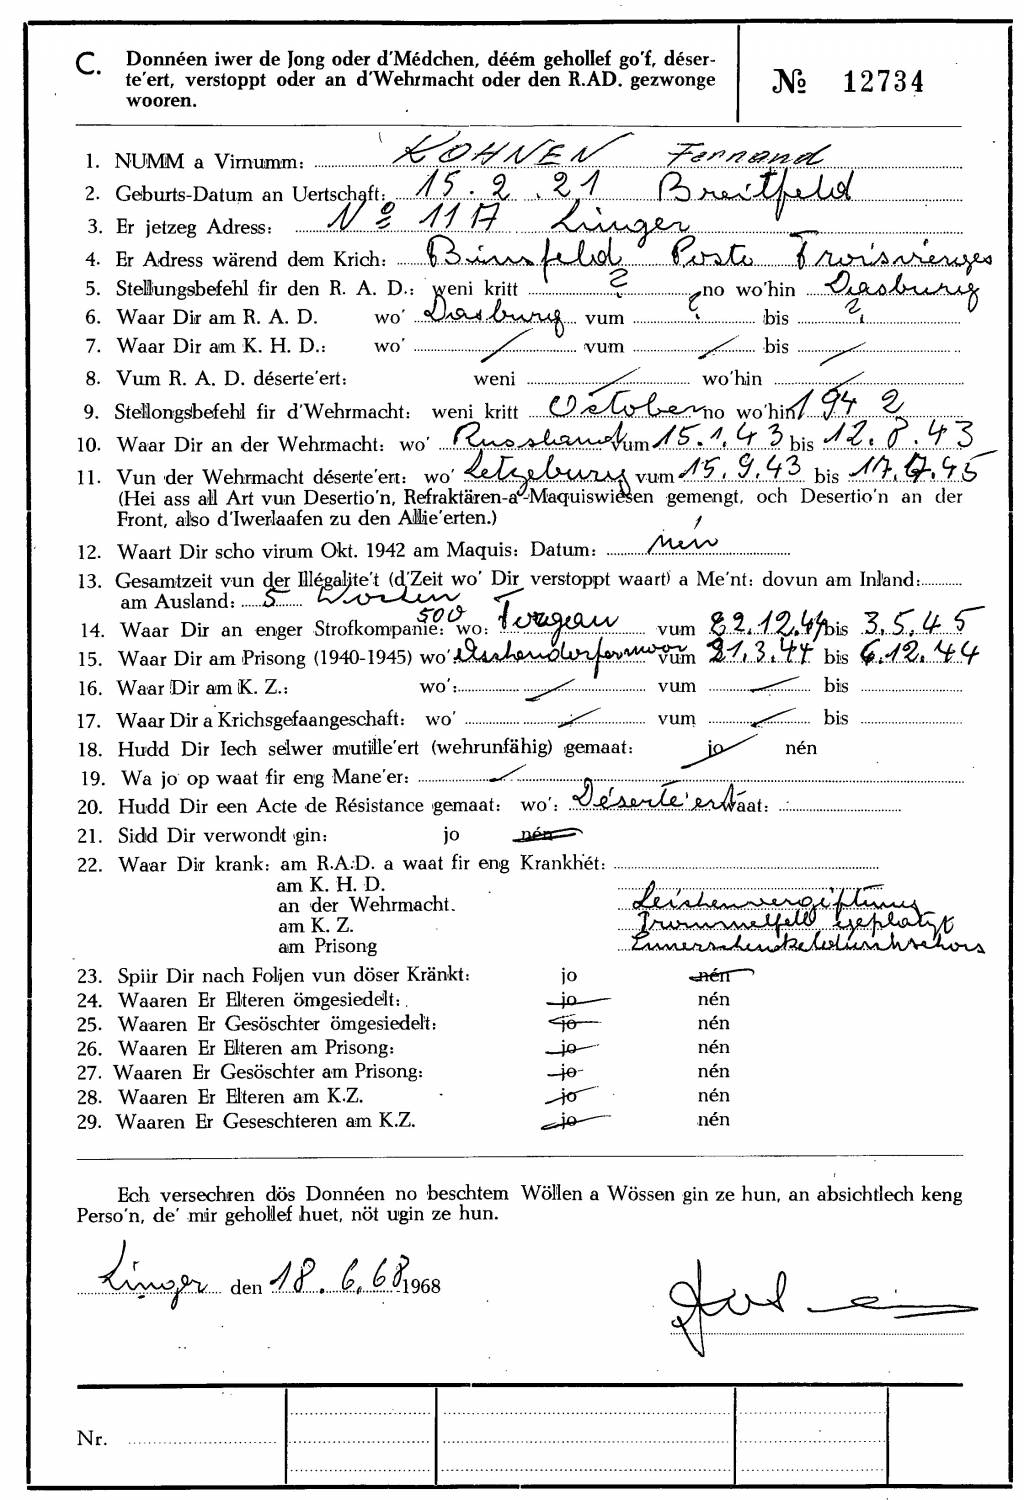 C. Donnéen iwer de Jong oder d'Médchen, déém gehollef go'f, déser-
te'ert, verstoppt oder an d'Wehrmacht oder den R.AD. gezwonge
wooren.
№ 12734
1. NUMM a Virnumm: KOHNEN Fernand
2. Geburts-Datum an Uertschaft: 15.2.21 Breitfeld
3. Er jetzeg Adress: Nº 117 Linger
4. Er Adress wärend dem Krich: Binsfeld Poste Troisvierges
5. Stellungsbefehl fir den R. A. D.: weni kritt ? no wo'hin Dasburg
6. Waar Dir am R. A. D. wo' Dasburg vum ? bis ?
7. Waar Dir am K. H. D.: wo' / vum / bis /
8. Vum R. A. D. déserte'ert: weni / wo'hin /
9. Stellongsbefehl fir d'Wehrmacht: weni kritt October no wo'hin 1942
10. Waar Dir an der Wehrmacht: wo' Russland vum 15.1.43 bis 12.8.43
11. Vun der Wehrmacht déserte'ert: wo' Letzeburg vum 15.9.43 bis
(Hei ass all Art vun Desertio'n, Refraktären-a Maquiswiesen gemengt, och Desertio'n an der
Front, also d'Iwerlaafen zu den Allie'erten.)
12. Waart Dir scho virum Okt. 1942 am Maquis: Datum: nén
13. Gesamtzeit vun der Illégalite't (d'Zeit wo' Dir verstoppt waart) a Me'nt: dovun am Inland:
am Ausland: 5
14. Waar Dir an enger Strofkompanie: wo: 500 Torgau vum 22.12.44 bis 3.5.45
15. Waar Dir am Prisong (1940-1945) wo' Aschendorfermoor vum 21.3.44 bis 6.12.44
16. Waar Dir am K. Z.: wo': / vum / bis
17. Waar Dir a Krichsgefaangeschaft: wo' / vum / bis
18. Hudd Dir Iech selwer mutille'ert (wehrunfähig) gemaat: jo nén
19. Wa jo op waat fir eng Mane'er: /
20. Hudd Dir een Acte de Résistance gemaat: wo': Déserte'ert Waat:
21. Sidd Dir verwondt gin: jo nén
22. Waar Dir krank: am R.A.D. a waat fir eng Krankhét:
am K. H. D.
an der Wehrmacht. Leishenvergiftung
am K. Z. Trommelfeld geplatzt
am Prisong
23. Spiir Dir nach Foljen vun döser Kränkt: jo nén
24. Waaren Er Elteren ömgesiedelt: jo nén
25. Waaren Er Gesöschter ömgesiedelt: jo nén
26. Waaren Er Elteren am Prisong: jo nén
27. Waaren Er Gesöschter am Prisong: jo nén
28. Waaren Er Elteren am K.Z. jo nén
29. Waaren Er Geseschteren am K.Z. jo nén
Ech versechren dös Donnéen no beschtem Wöllen a Wössen gin ze hun, an absichtlech keng
Perso'n, de' mir gehollef huet, nöt ugin ze hun.
Linger den 18.6.68 1968
Nr.